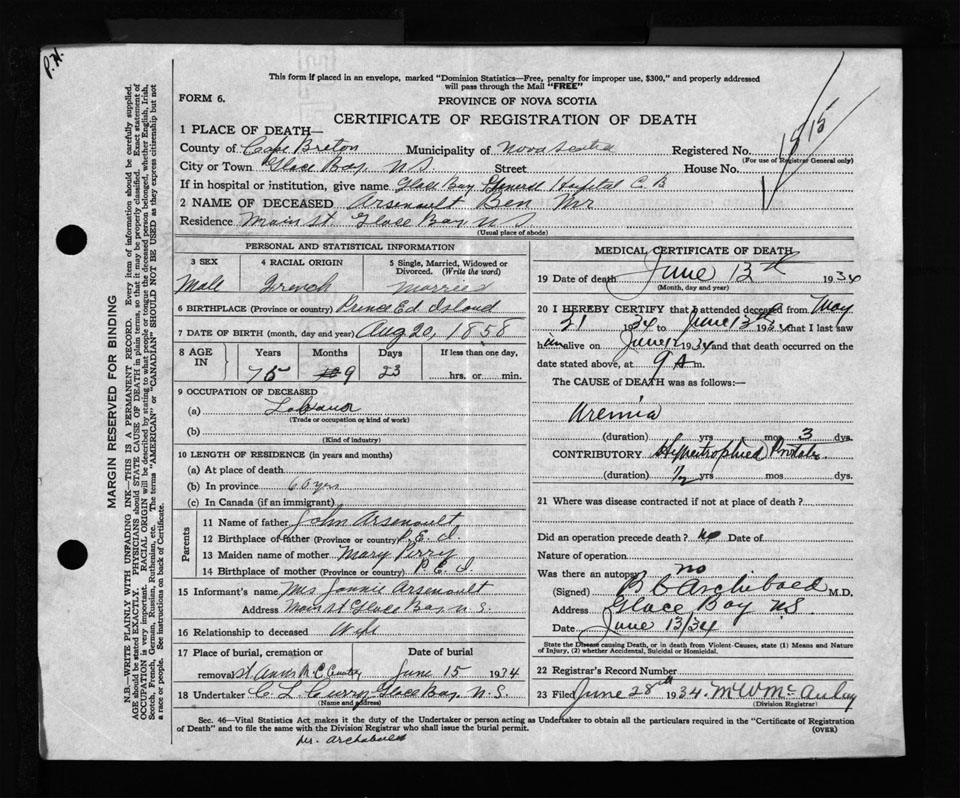 P.H.
This form if placed in an envelope, marked "Dominion Statistics—Free, penalty for improper use, $300," and properly addressed
will pass through the Mail "FREE"
FORM 6.
PROVINCE OF NOVA SCOTIA
CERTIFICATE OF REGISTRATION OF DEATH
1 PLACE OF DEATH—
County of Cape Breton Municipality of Nova Scotia Registered No.
(For use of Registrar General only)
1815
City or Town Glace Bay N S Street House No.
If in hospital or institution, give name Glace Bay General Hospital C. B
2 NAME OF DECEASED Arsenault Ben Mr
Residence Main St. Glace Bay N S
(Usual place of abode)
PERSONAL AND STATISTICAL INFORMATION
3 SEX 4 RACIAL ORIGIN 5 Single, Married, Widowed or Divorced. (Write the word)
Male French Married
6 BIRTHPLACE (Province or country) Prince Ed Island
7 DATE OF BIRTH (month, day and year) Aug 20, 1858
8 AGE IN Years Months Days If less than one day,
75 9 23 hrs. or min.
9 OCCUPATION OF DECEASED
(a) Labour
(Trade or occupation or kind of work)
(b)
(Kind of industry)
10 LENGTH OF RESIDENCE (in years and months)
(a) At place of death
(b) In province 60 yrs
(c) In Canada (if an immigrant)
Parents
11 Name of father John Arsenault
12 Birthplace of father (Province or country) P.E. I
13 Maiden name of mother Mary Perry
14 Birthplace of mother (Province or country) P.E. I
15 Informant's name Mrs Jennie Arsenault
Address Main St Glace Bay N. S.
16 Relationship to deceased Wife
17 Place of burial, cremation or removal Date of burial
St Anns R C Cemetry June 15 1934
18 Undertaker C. L. Curry Glace Bay N. S.
(Name and address)
MEDICAL CERTIFICATE OF DEATH
19 Date of death June 13th 1934
(Month, day and year)
20 I HEREBY CERTIFY that I attended deceased from May
21 1934 to June 13th 1934 that I last saw
him alive on June 12 1934 and that death occurred on the
date stated above, at 9 A m.
The CAUSE of DEATH was as follows:—
Uremia
(duration) yrs mos 3 dys.
CONTRIBUTORY Hypertrophied Prostate
(duration) 1/2 yrs mos dys
21 Where was disease contracted if not at place of death?
Did an operation precede death? no Date of
Nature of operation
Was there an autopsy no
(Signed) B C Archibald M.D.
Address Glace Bay N.S.
Date June 13/34
State the Disease causing Death, or in death from Violent-Causes, state (1) Means and Nature
of Injury, (2) whether Accidental, Suicidal or Homicidal.
22 Registrar's Record Number
23 Filed June 28th 1934. M W McAulay
(Division Registrar)
Sec. 46—Vital Statistics Act makes it the duty of the Undertaker or person acting as Undertaker to obtain all the particulars required in the "Certificate of Registration
of Death" and to file the same with the Division Registrar who shall issue the burial permit.
(OVER)
Dr. Archibald
MARGIN RESERVED FOR BINDING
N.B.—WRITE PLAINLY WITH UNFADING INK—THIS IS A PERMANENT RECORD. Every item of information should be carefully supplied.
AGE should be stated EXACTLY. PHYSICIANS should STATE CAUSE OF DEATH in plain terms, so that it may be properly classified. Exact statement of
OCCUPATION is very important. RACIAL ORIGIN will be described by stating to what people or tongue the deceased person belonged, whether English, Irish,
Scotch, French, German, Russian, Ruthenian, etc. The terms "AMERICAN" or "CANADIAN" SHOULD NOT BE USED as they express citizenship but not
a race or people. See instructions on back of Certificate.